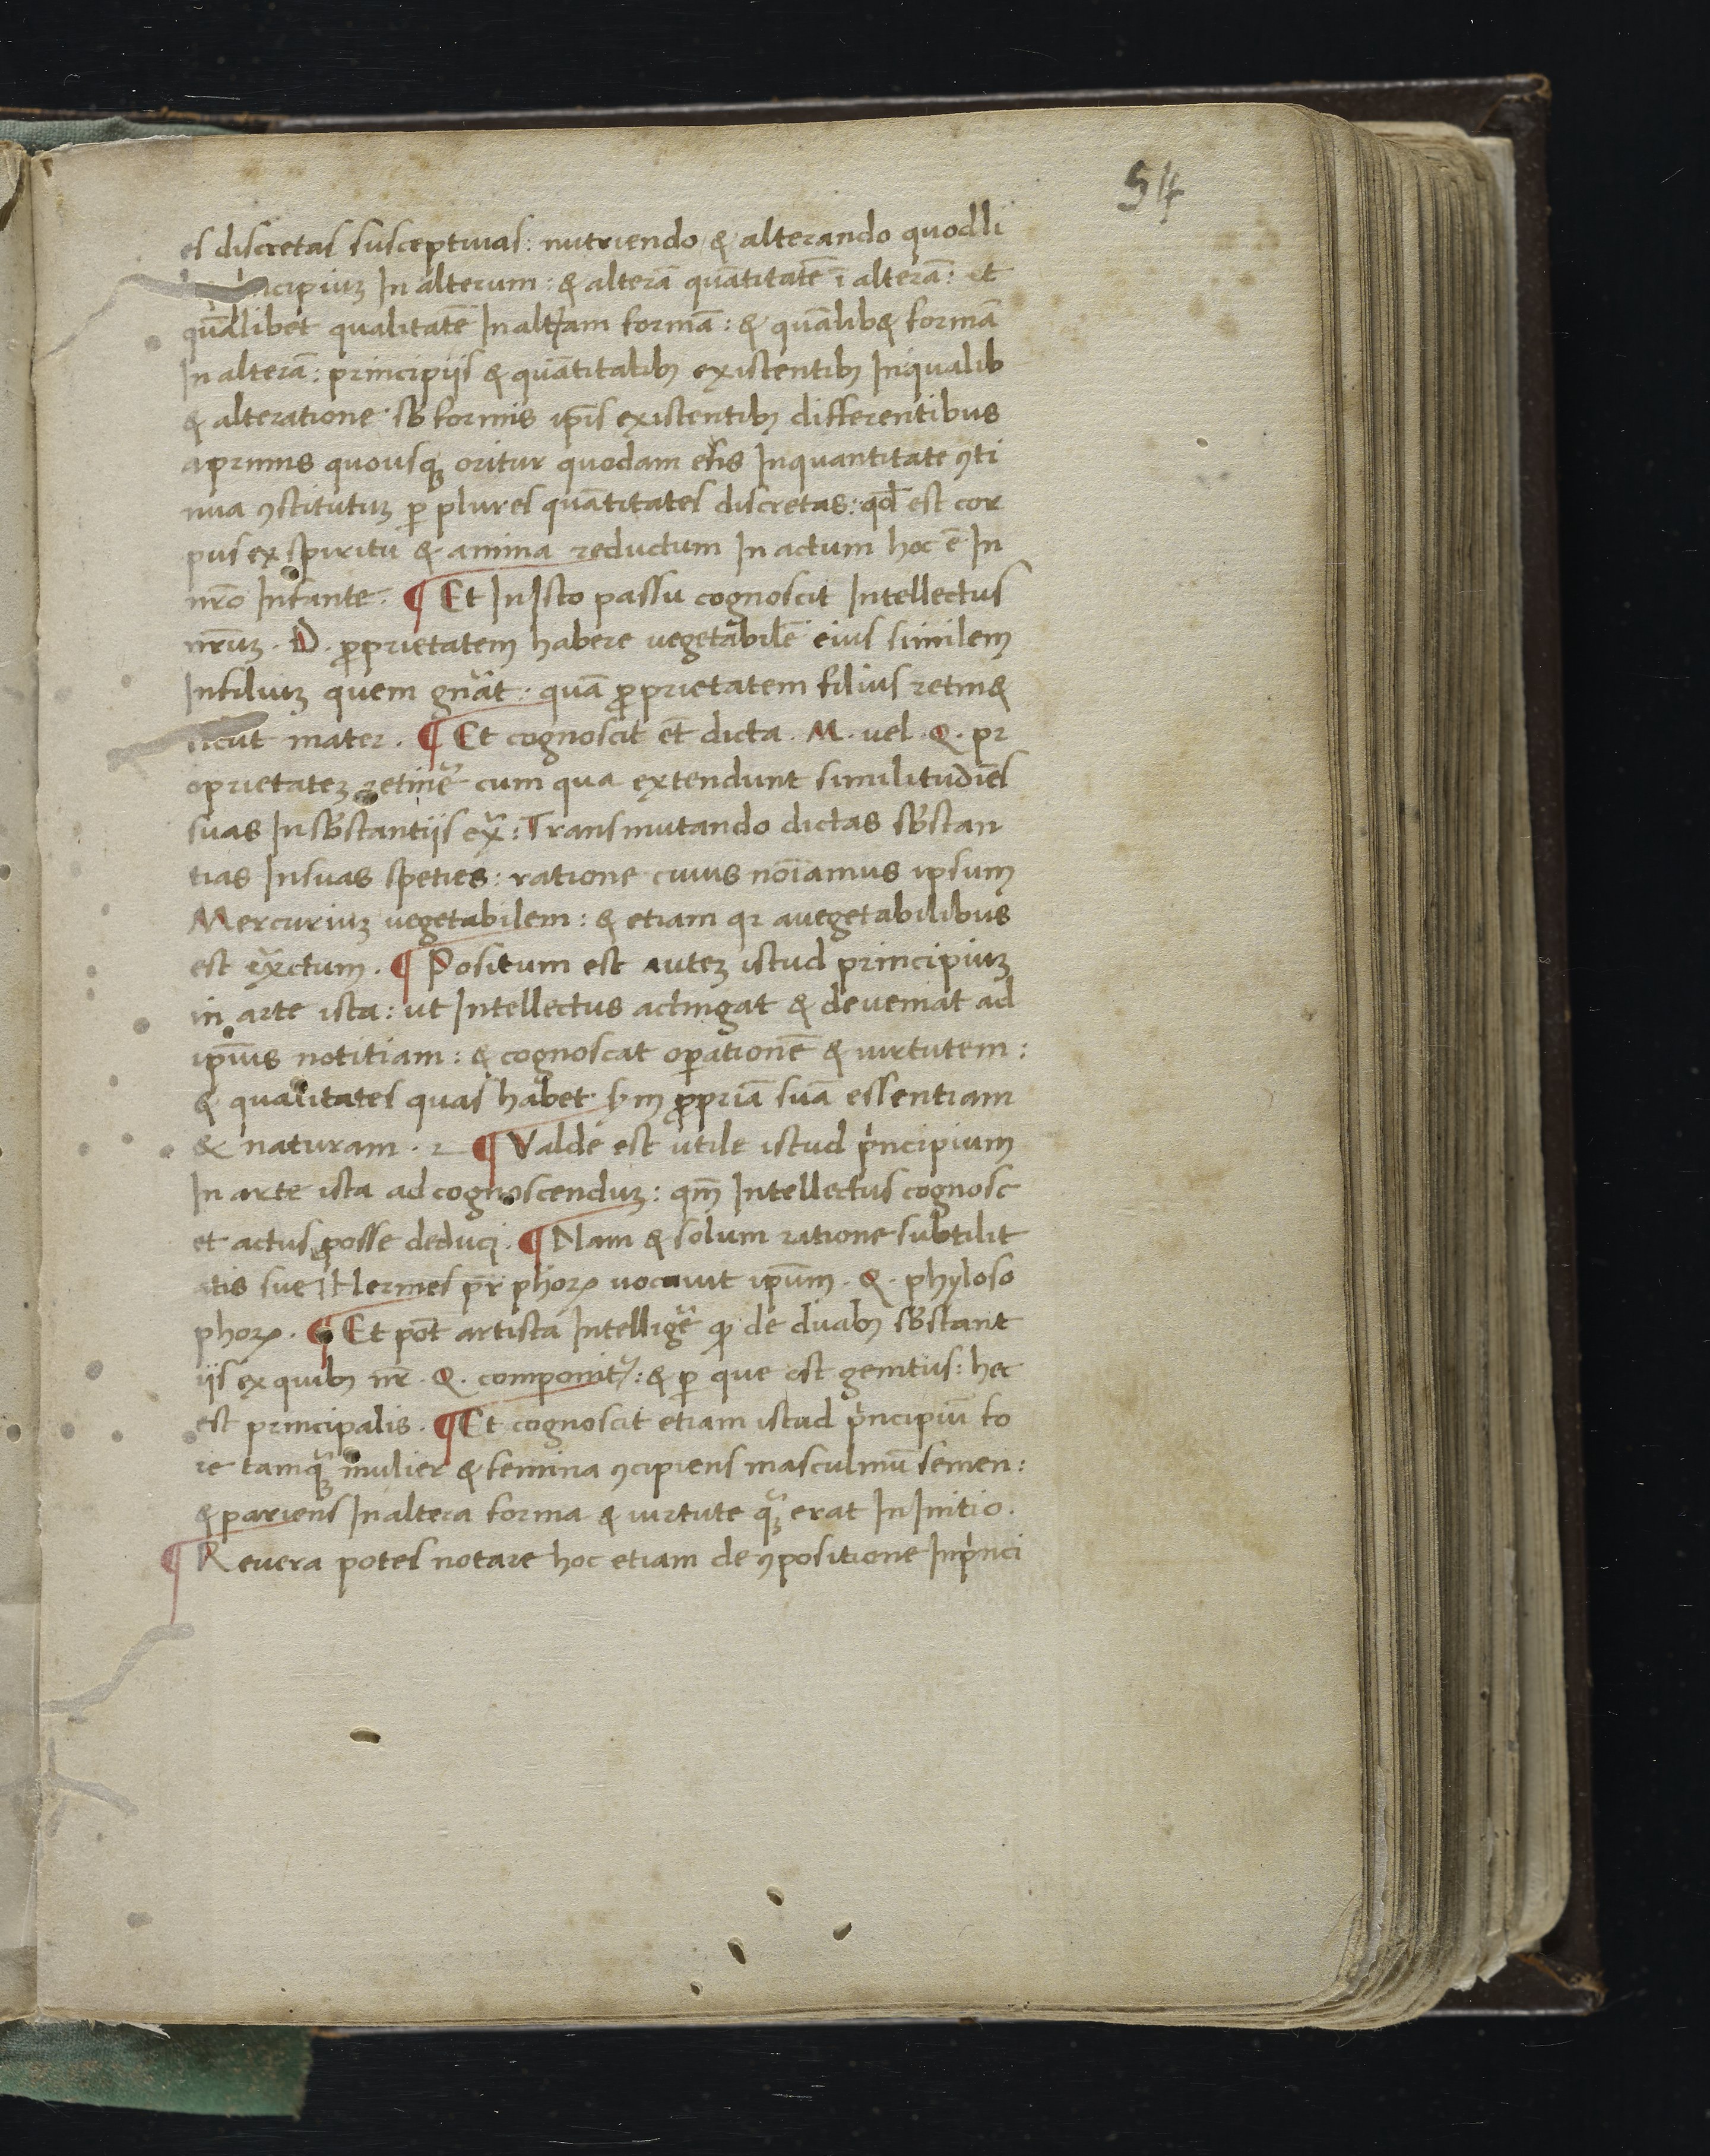 54
es discretas susceptiuas: nutriendo & alterando quodli
cipiuꝫ In alterum: & alterā quātitatē ī alterā: ut
quālibet qualitatē In altᷣam formā: & quālib& formā
In alterā: principijs & quātitatibꝫ existentibꝫ Inqualib
& alteratione sb̄ formis ip̄is existentibꝫ differentibus
aprimis quousqꝫ oritur quodam ens Inquantitate ꝯti
nua ꝯstitutuꝫ ꝑ plures quātitates discretas: qd̄ est cor
pus ex spiritu & anima reductum In actum hoc ē In
nr̄o Infante. ¶ Et In Isto passu cognoscit Intellectus
nr̄uꝫ. D. ꝓprietatem habere uegetabilē eius similem
Infiliuꝫ quem gnāt: quā ꝓprietatem filius retin&
sicut mater. ¶ Et cognoscit et̄ dicta. M. uel. Q. pr
oprietateꝫ retinē cum qua extendunt similitudīes
suas In sb̄stantijs ex̄: Transmutando dictas sb̄stan
tias Insuas speties: ratione cuius noīamus ipsum
Mercuriuꝫ uegetabilem: & etiam qꝛ auegetabilibus
est ex̄ctum. ¶ Positum est auteꝫ istud principiuꝫ
in arte ista: ut Intellectus actingat & deueniat ad
ip̄ius notitiam: & cognoscat oꝑationē & uirtutem:
& qualitates quas habet sm̄ ꝓpriā suā essentiam
& naturam. ¶ Valde est utile istud pͥncipium
In arte ista ad cognoscenduꝫ: qm̄ Intellectus cognosc
et actus posse deduci. ¶ Nam & solum ratione subtilit
atis sue Hermes pr̄ phōꝝ uocauit ip̄um. Q. phyloso
phoꝝ. ¶ Et pōt artista Intelligē ꝙ de duabꝫ sb̄stant
ijs ex quibꝫ nr̄. Q. componitᷣ: & ꝑ que est genitus: hec
est principalis. ¶ Et cognoscit etiam istud pͥncipiū fo
re tamqꝫ mulier & femina ꝯcipiens masculinū semen:
& pariens In altera forma & uirtute qꝫ erat In Initio.
¶ Reuera potes notare hoc etiam de ꝯpositione Inpͥnci